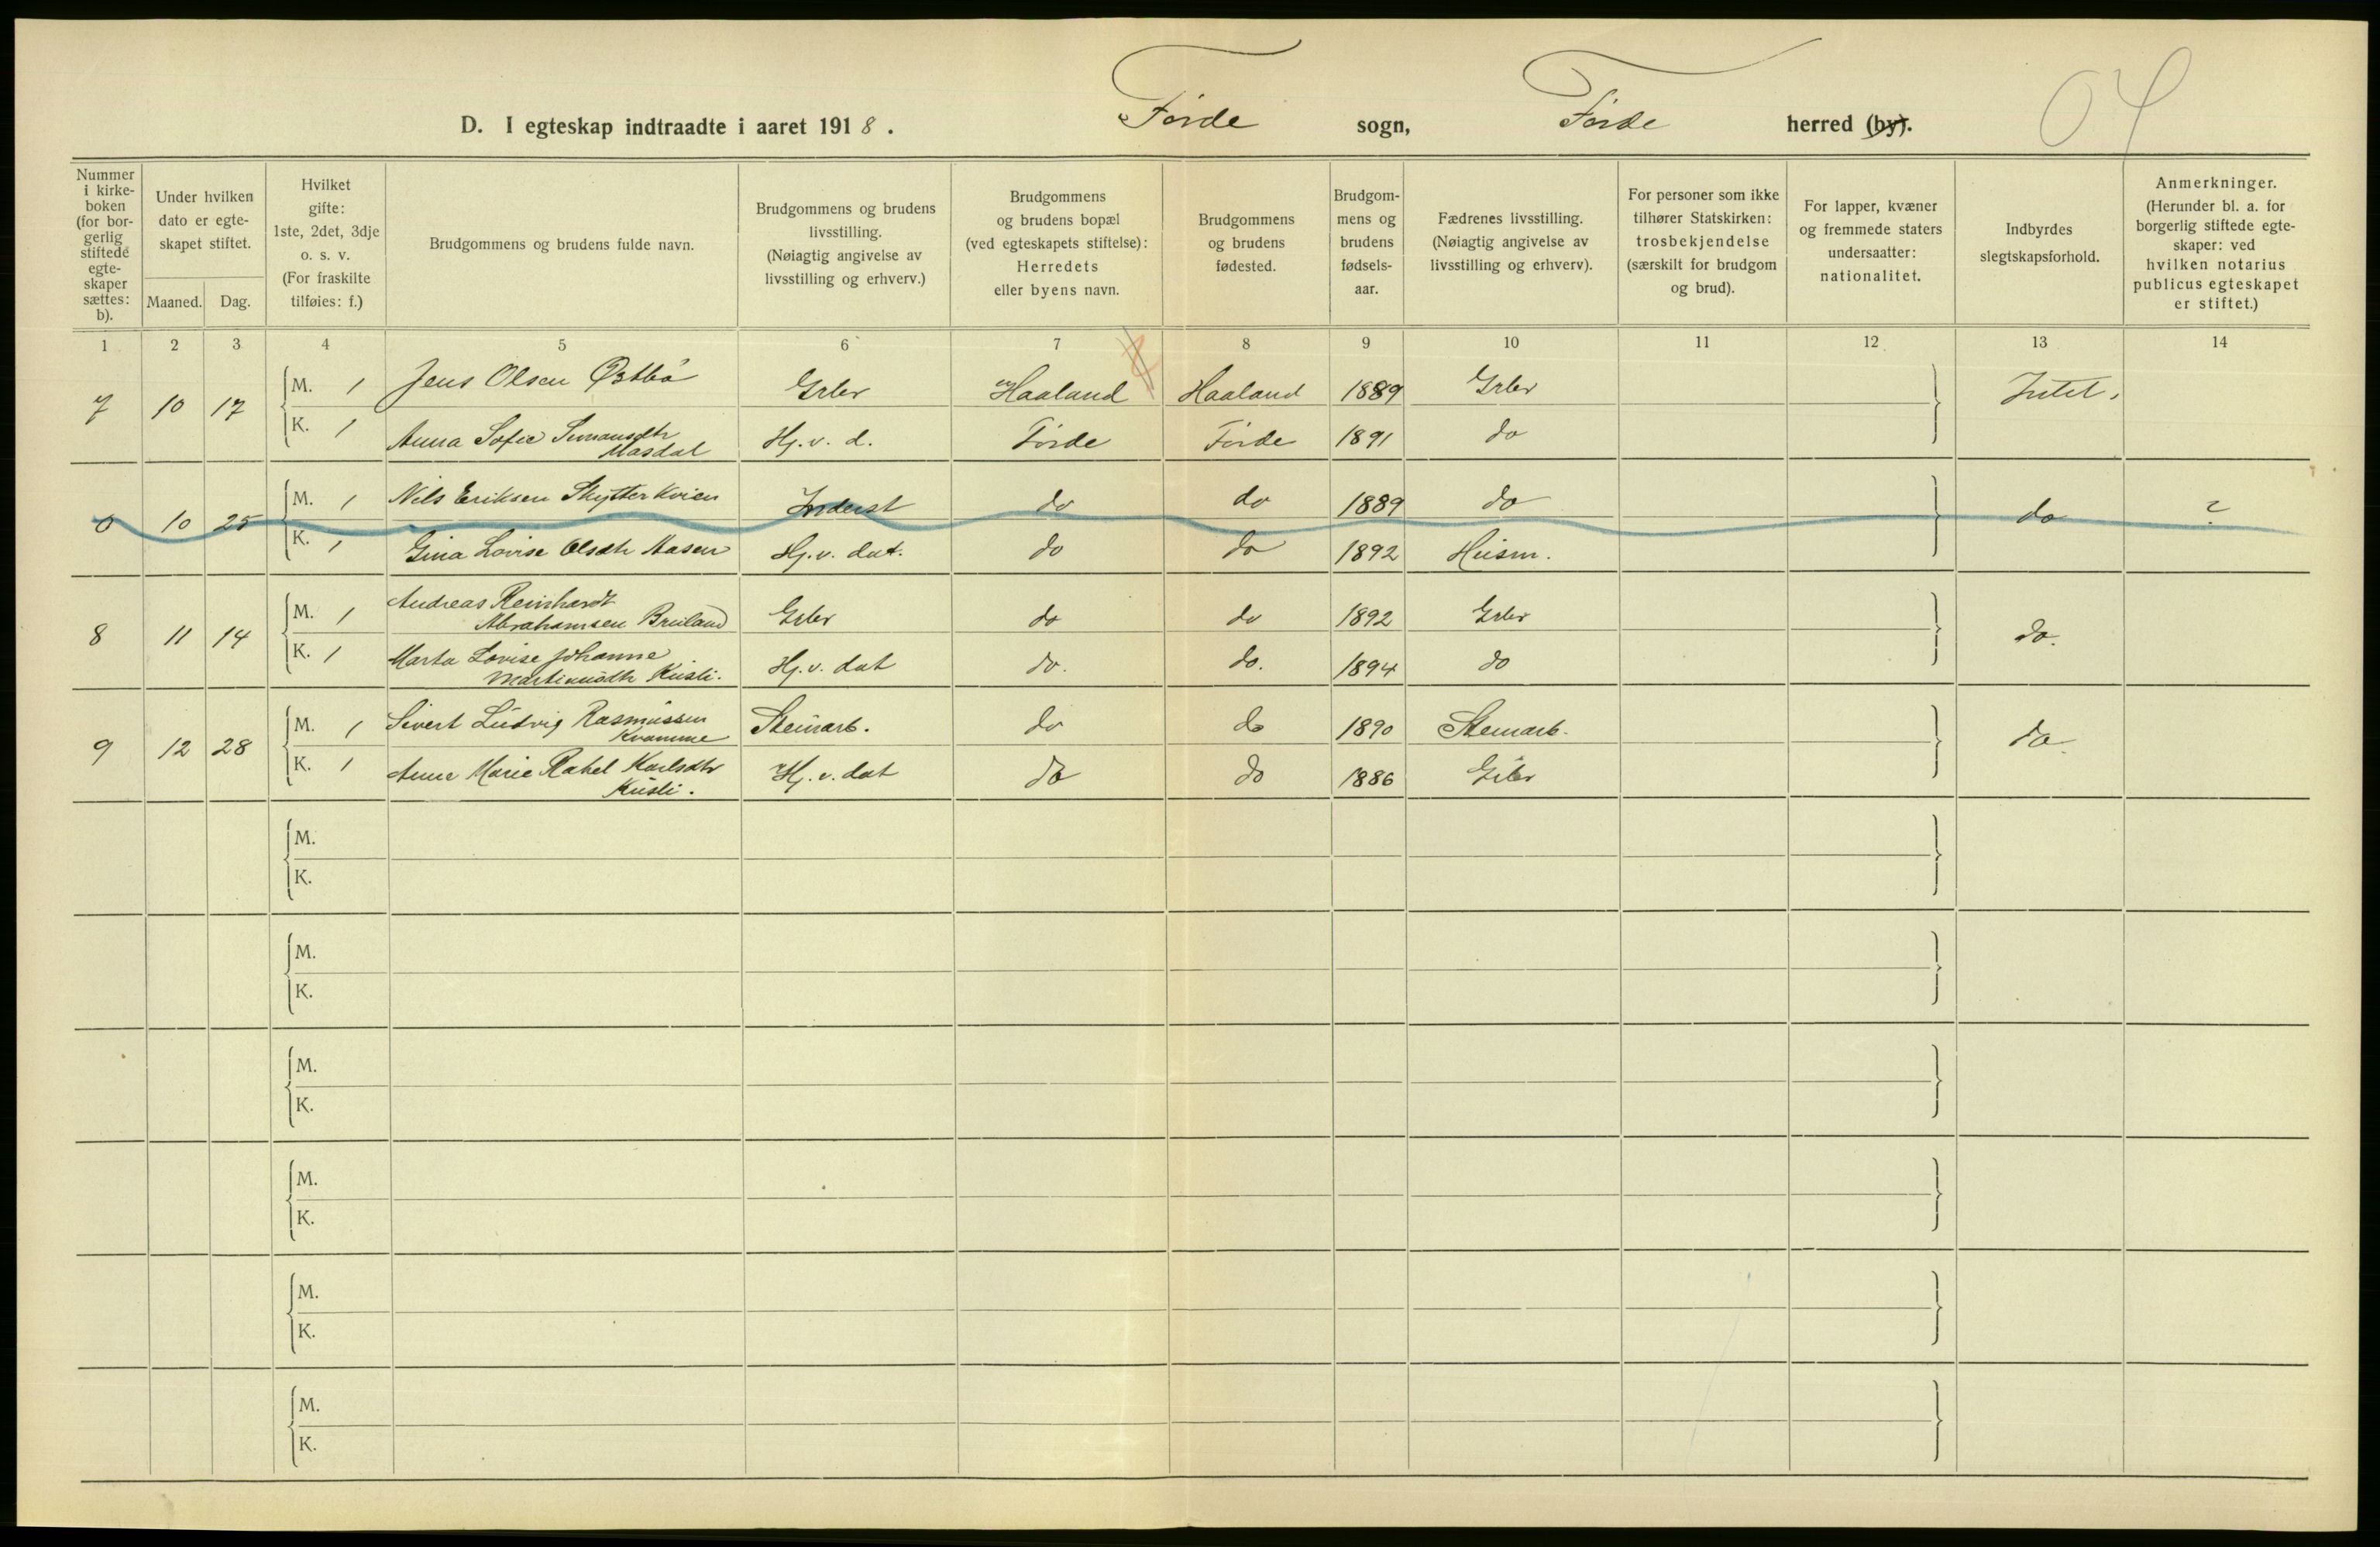 D. I egteskap indtraadte i aaret 1918. Førde sogn, Førde herred (by).
Nummer i kirke-boken (for bor-gerlig stiftede egte-skaper sættes: b).
Under hvilken dato er egte-skapet stiftet.
Maaned. Dag.
Hvilket gifte: 1ste, 2det, 3dje o. s. v. (For fraskilte tilføies: f.)
Brudgommens og brudens fulde navn.
Brudgommens og brudens livsstilling. (Nøiagtig angivelse av livsstilling og erhverv.)
Brudgommens og brudens bopæl (ved egteskapets stiftelse): Herredets eller byens navn.
Brudgommens og brudens fødested.
Brudgom-mens og brudens fødsels-aar.
Fædrenes livsstilling. (Nøiagtig angivelse av livsstilling og erhverv).
For personer som ikke tilhører Statskirken: trosbekjendelse (særskilt for brudgom og brud).
For lapper, kvæner og fremmede staters undersaatter: nationalitet.
Indbyrdes slegtskapsforhold.
Anmerkninger. (Herunder bl. a. for borgerlig stiftede egte-skaper: ved hvilken notarius publicus egteskapet er stiftet.)
1 2 3 4 5 6 7 8 9 10 11 12 13 14
7 10 17 M. 1 Jens Olsen Østbö Grbr Haaland Haaland 1889 Grbr Intet.
K. 1 Anna Sofie Simonsdtr Masdal Hj. v. d. Førde Førde 1891 do
0 10 25 M. 1 Nils Eriksen Skytterkvien Inderst do do 1889 do do ?
K. 1 Gina Lovise Olsdtr Aasen Hj. v. dat. do do 1892 Husm.
8 11 14 M. 1 Andreas Reinhardt
Abrahamsen Bruland Grbr do do 1892 Grbr do.
K. 1 Marta Lovise Johanne
Martinusdtr Kusli. Hj. v. dat do. do. 1894 do
9 12 28 M. 1 Sivert Ludvig Rasmussen
Kvamme Steinarb. do do 1890 Steinarb. do.
K. 1 Anne Marie Rakel Karlsdtr
Kusli. Hj. v. dat do do 1886 Grbr
M.
K.
M.
K.
M.
K.
M.
K.
M.
K.
M.
K.